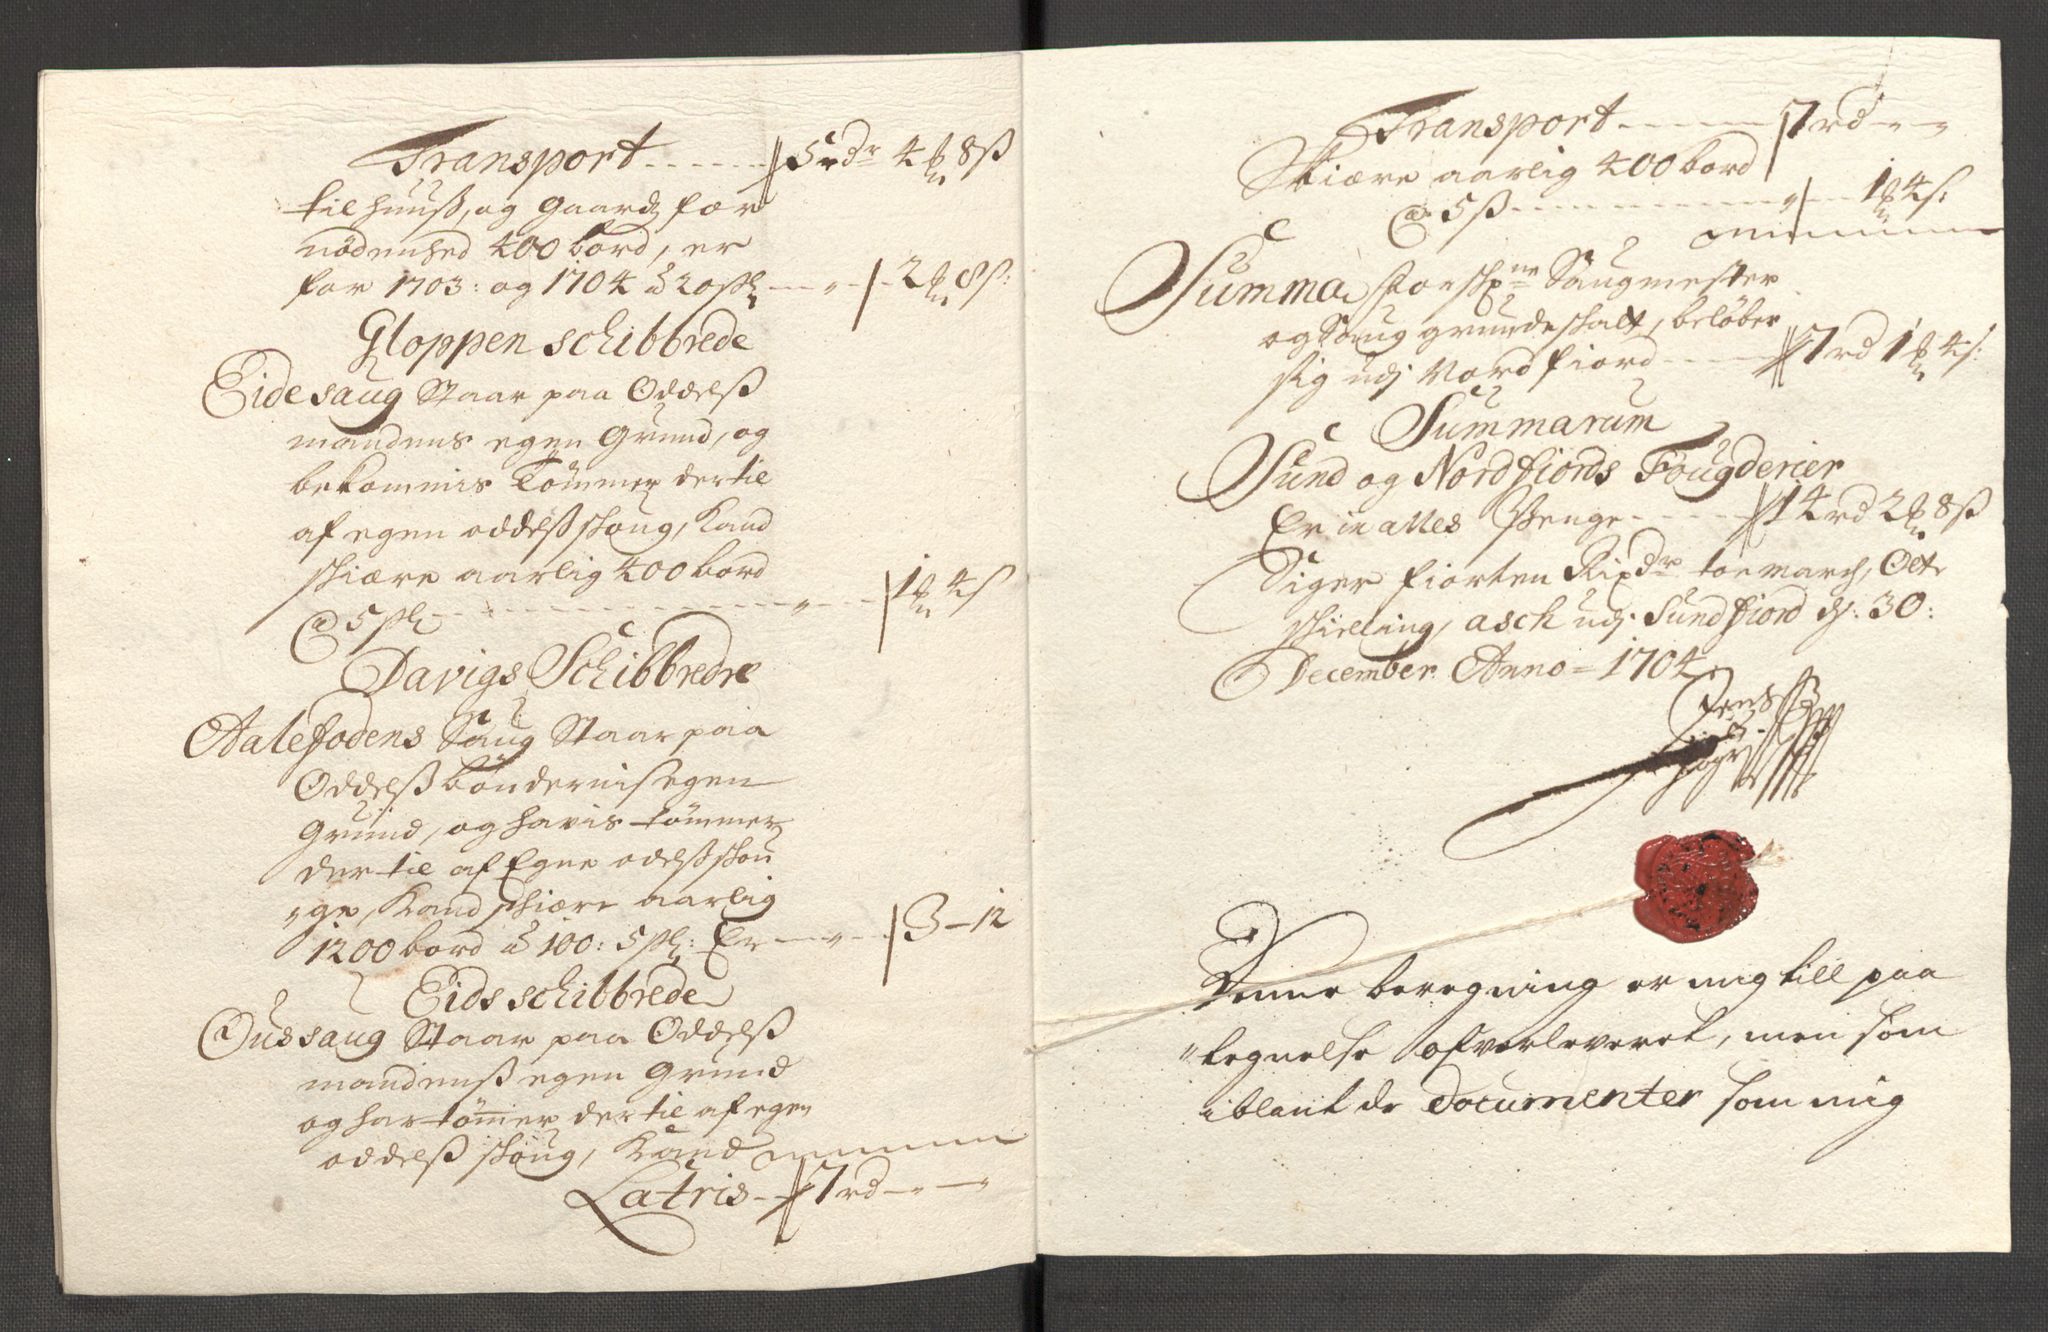 Transport ------ 5rdr 4 ₻ 8ß
til Huuß, og Gaardz for
nødenhed 400 bord, er
for 1703: og 1704 à 20ßl ---- 2 ₻ 8ß:
Gloppen schibbrede
Eide saug Staar paa Oddelß
mandens egen Grund, og
bekommis Tømmer der til
af egen oddelß skoug, Kand
skiære aarlig 400 bord
@ 5ßl ---- 1 ₻ 4ß
Davigs Schibbredre
Aalefodens Saug Staar paa
Oddelß bøndernis egen
Grund, og havis tømmer
der til af Egne odelß skou
"ge, Kand skiære aarlig
1200 bord à 100: 5ßl: Er ---- 3 – 12
Eids schibbrede
Ous saug Staar paa Oddelß
mandenß egen Grund
og har tømer der til af egen
oddelß skoug, Kand
Latris – 7rd – –
Transport ------ 7rd – –
Skiære aarlig 400 bord
@ 5ß ---- 1 ₻ 4ß:
Summa Saugmester
og Saug grunde skatt, beløber
sig udj Nordfiord ---- 7rd 1 ₻ 4ß:
Summarum
Sund og Nordfiords Fougderier
Er in alles Penge ---- 14rd 2 ₻ 8ß
Siger fiorten Rixdr toe march, Otte
skielling, asch udj Sundfiord d: 30:
December Anno = 1704
Denne beregning er mig till paa
"tegnelse ofverleveret, men som
iblant de Documenter som mig